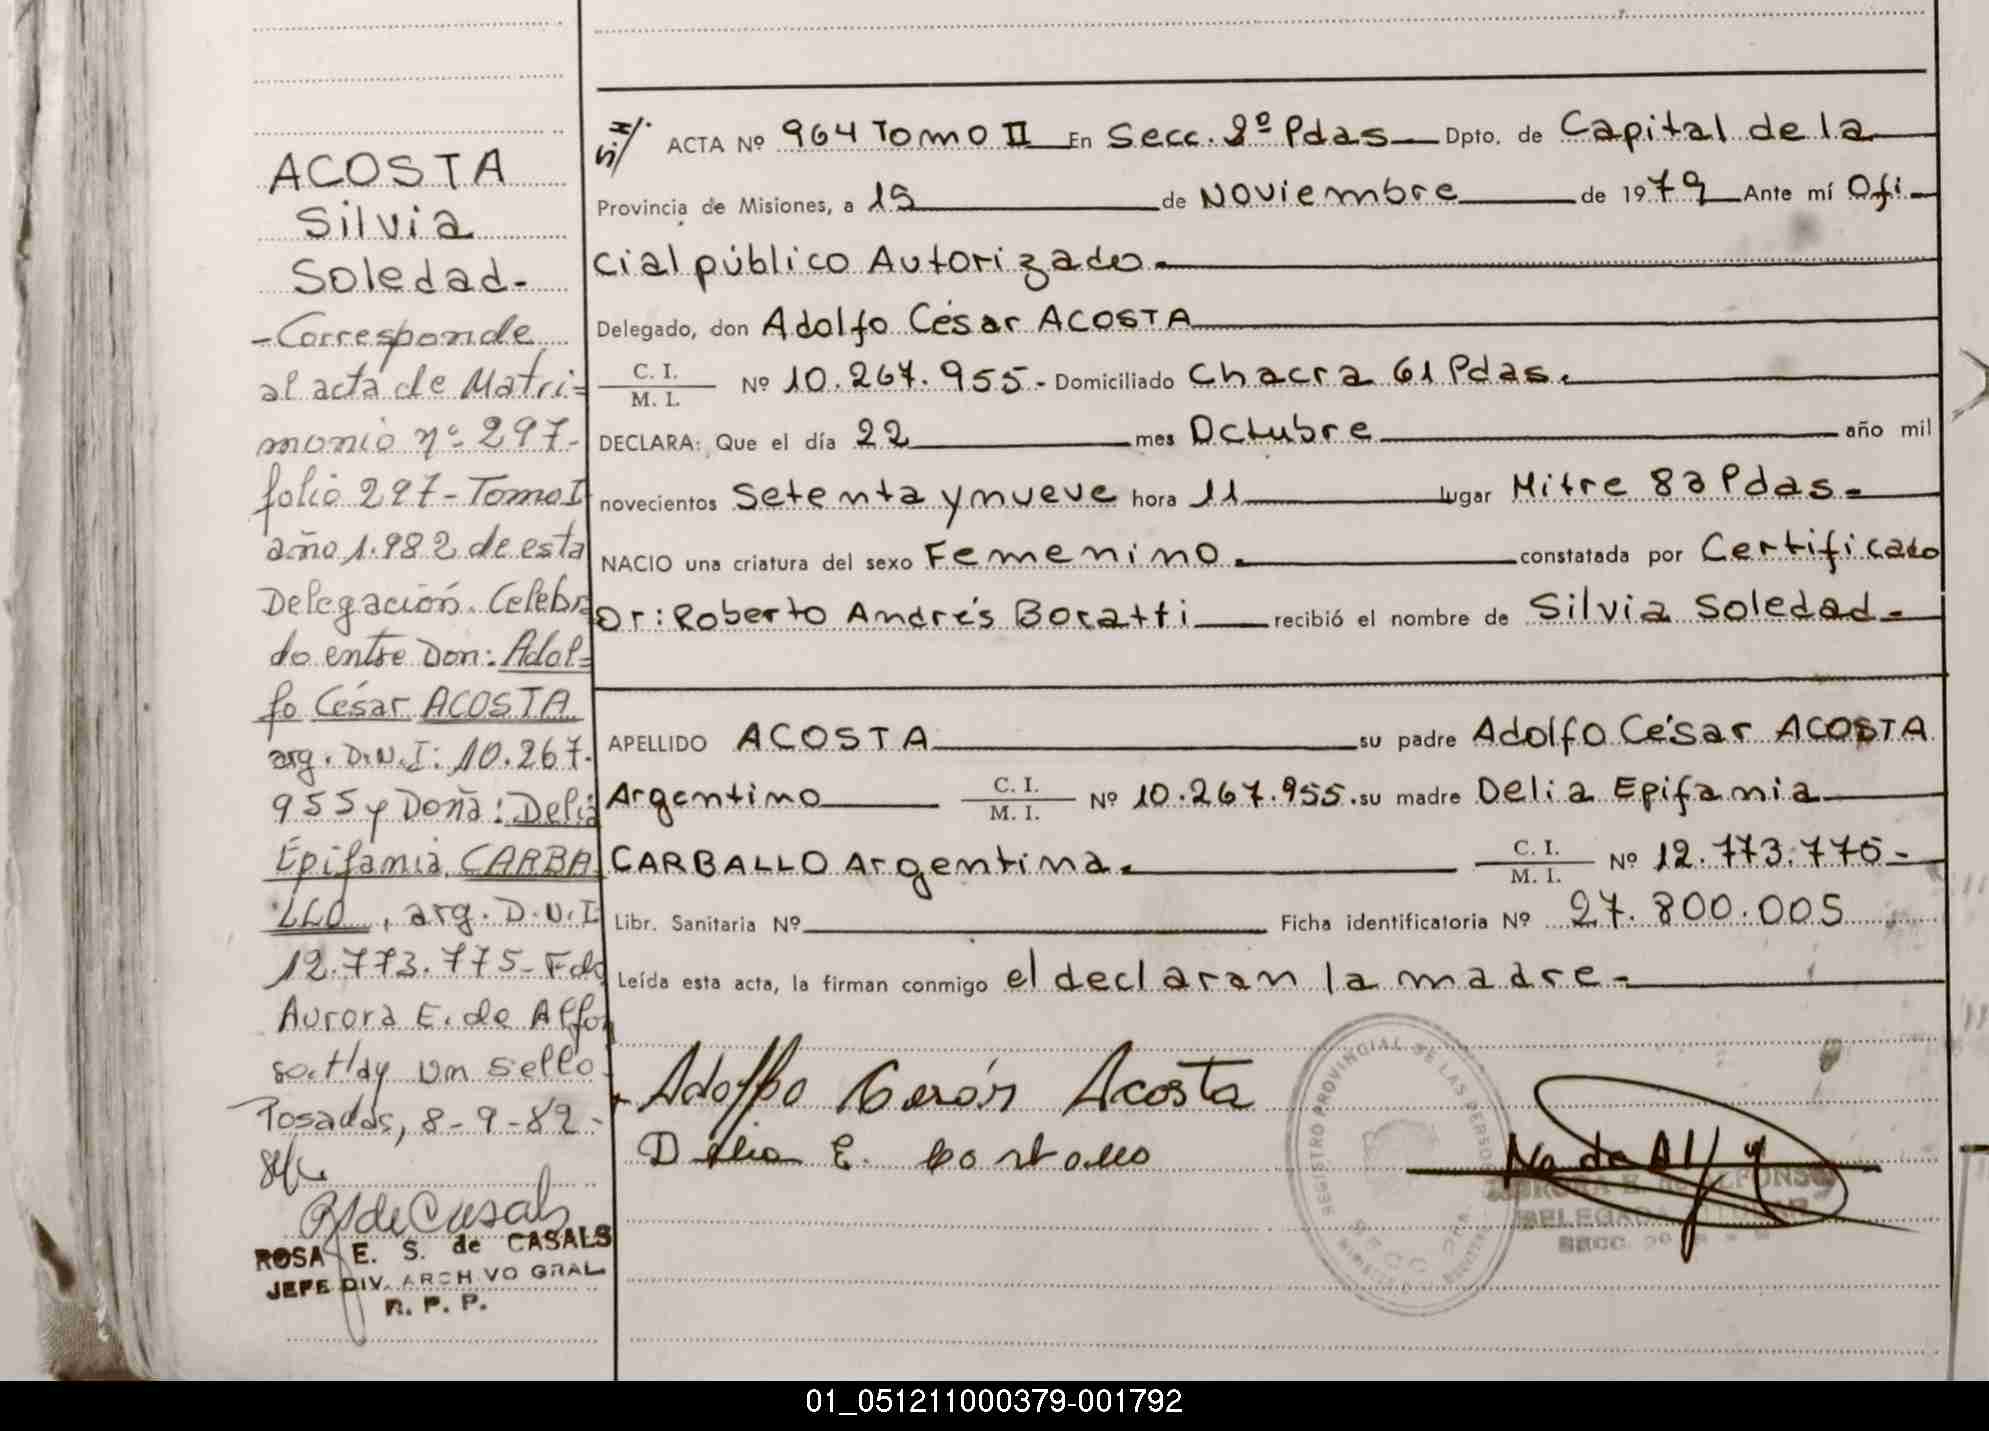 ACOSTA
Silvia
Soledad-
-Corresponde
al acta de Matri=
monio nº 297-
folio 297-Tomo I
año 1.982 de esta
Delegación. Celebra
do entre Don: Adol=
fo César ACOSTA
arg. D.N.I: 10.267.
955 y Doña: Delia
Epifamia CARBA
LLO, arg. D.N.I
12.773.775- Fdo
Aurora E. de Alfon
so. Hay un sello.
Posadas, 8-9-82-
RSdeCasals
ROSA E. S. de CASALS
JEFE DIV. ARCHIVO GRAL
R. P. P.
S/I/. ACTA Nº 964 Tomo II En Secc. 2º Pdas Dpto. de Capital de la
Provincia de Misiones, a 15 de Noviembre de 1979 Ante mí Ofi
cial público Autorizado.
Delegado, don Adolfo César ACOSTA
C. I. / M. I. Nº 10.267.955- Domiciliado Chacra 61 Pdas.
DECLARA: Que el día 22 mes Octubre año mil
novecientos Setenta y nueve hora 11 lugar Mitre 82 Pdas-
NACIO una criatura del sexo Femenino. constatada por Certificado
Dr: Roberto Andrés Boratti recibió el nombre de Silvia Soledad-
APELLIDO ACOSTA su padre Adolfo César ACOSTA
Argentino C. I. / M. I. Nº 10.267.955. su madre Delia Epifamia
CARBALLO Argentina. C. I. / M. I. Nº 12.773.775-
Libr. Sanitaria Nº Ficha identificatoria Nº 27.800.005
Leída esta acta, la firman conmigo el declaran la madre-
Adolfo Cesár Acosta
Delia E. Carballo
REGISTRO PROVINCIAL DE LAS PERSONAS
AURORA E. de ALFONSO
DELEGADA TITULAR
SECC. 2º
01_051211000379-001792